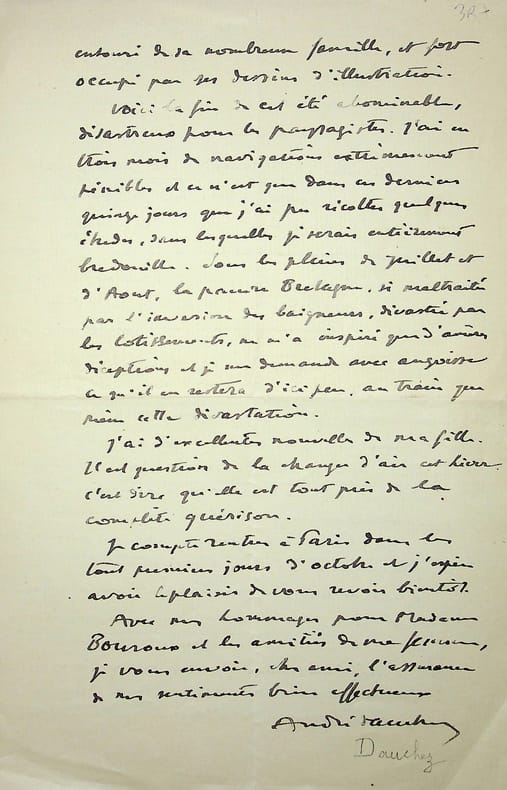 entouré de sa nombreuse famille, et fort
occupé par ses dessins d'illustration.
Voici la fin de cet été abominable,
désastreux pour les paysagistes. J'ai eu
trois mois de navigations extrêmement
pénibles et ce n'est que dans ces derniers
quinze jours que j'ai pu récolter quelques
études, sans lesquelles je serais entièrement
bredouille. Sous les pluies de Juillet et
d'Aout, la pauvre Bretagne, si maltraitée
par l'invasion des baigneurs, dévastée par
les lotissements, ne m'a inspiré que d'amères
déceptions et je me demande avec angoisse
ce qu'il en restera d'ici peu, au train que
mène cette dévastation.
J'ai d'excellentes nouvelles de ma fille.
Il est question de la changer d'air cet hiver
c'est dire qu'elle est tout près de la
complète guérison.
Je compte rentrer à Paris dans les
tout premiers jours d'octobre et j'espère
avoir le plaisir de vous revoir bientôt.
Avec mes hommages pour Madame
Bouroux et les amitiés de ma femme,
je vous envoie, cher ami, l'assurance
de mes sentiments bien affectueux
André Dauchez
Dauchez